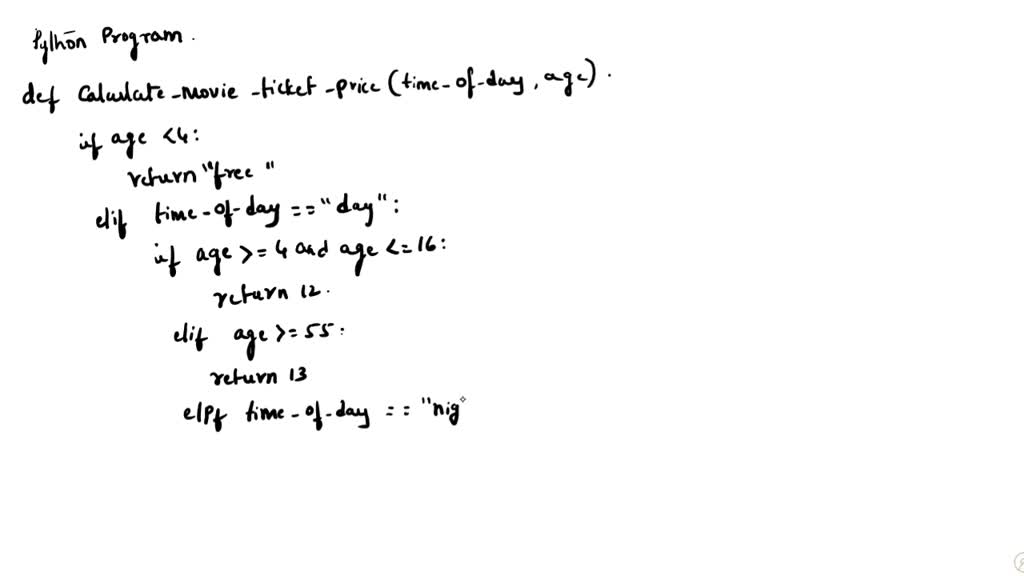 Python Program.
def Calculate-movie-ticket-price (time-of-day, age).
if age <4:
return "free"
elif time-of-day == "day":
if age >= 4 and age <= 16:
return 12.
elif age >= 55:
return 13
elif time-of-day == "nig